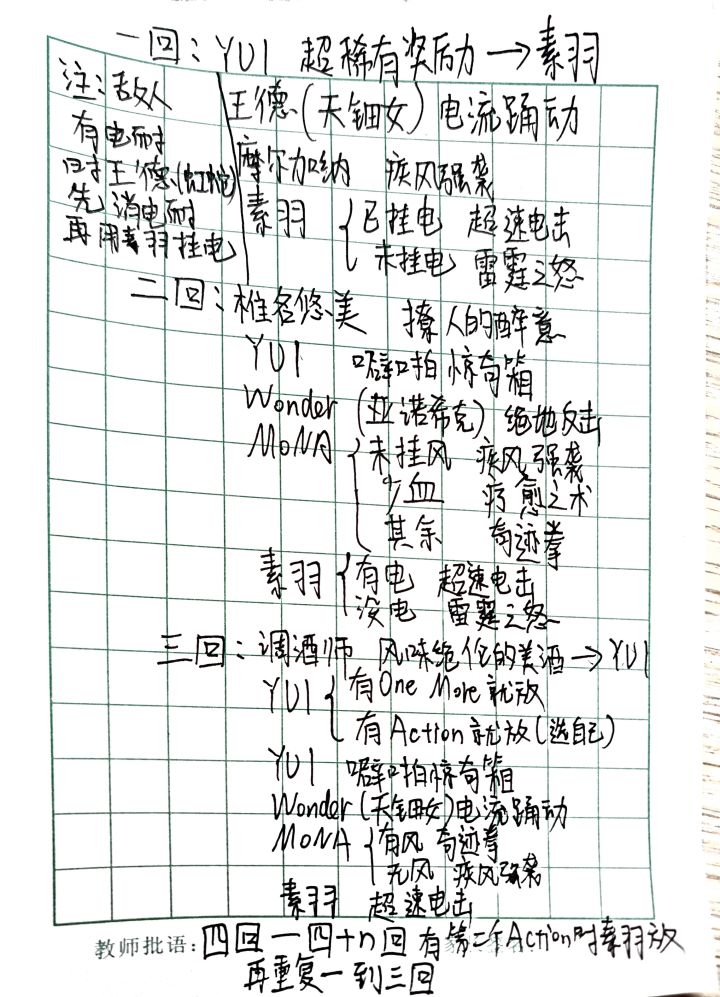 一回：YUI 超稀有奖励 → 素羽
注：敌人
有电耐
时王德(虹蛇)
先消电耐
再用素羽挂电
王德(天钿女) 电流踊动
摩尔加呐 疾风强袭
素羽 已挂电 超速电击
未挂电 雷霆之怒
二回：椎名悠美 撩人的醉意
YUI 噼啪惊奇箱
Wonder (亚诺希克) 绝地反击
MoNA 未挂风 疾风强袭
少血 疗愈之术
其余 奇迹拳
素羽 有电 超速电击
没电 雷霆之怒
三回：调酒师 风味绝伦的美酒 → YUI
YUI 有One More就放
有Action就放(选自己)
YUI 噼啪惊奇箱
Wonder(天钿女)电流踊动
MoNA 有风 奇迹拳
无风 疾风强袭
素羽 超速电击
教师批语：四回一四+n回 有第二个Action时素羽放
再重复一到三回